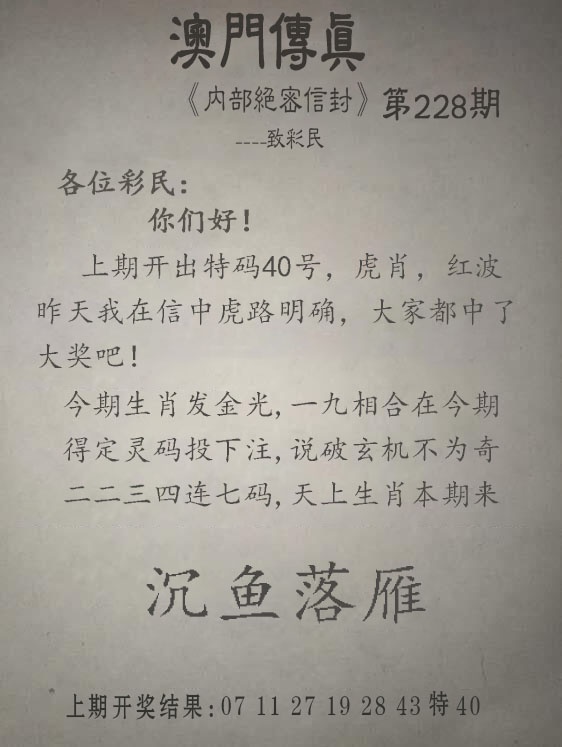 澳門傳真
《内部絕密信封》第228期
----致彩民
各位彩民：
你们好！
上期开出特码40号，虎肖，红波
昨天我在信中虎路明确，大家都中了
大奖吧！
今期生肖发金光,一九相合在今期
得定灵码投下注,说破玄机不为奇
二二三四连七码,天上生肖本期来
沉鱼落雁
上期开奖结果:07 11 27 19 28 43特40